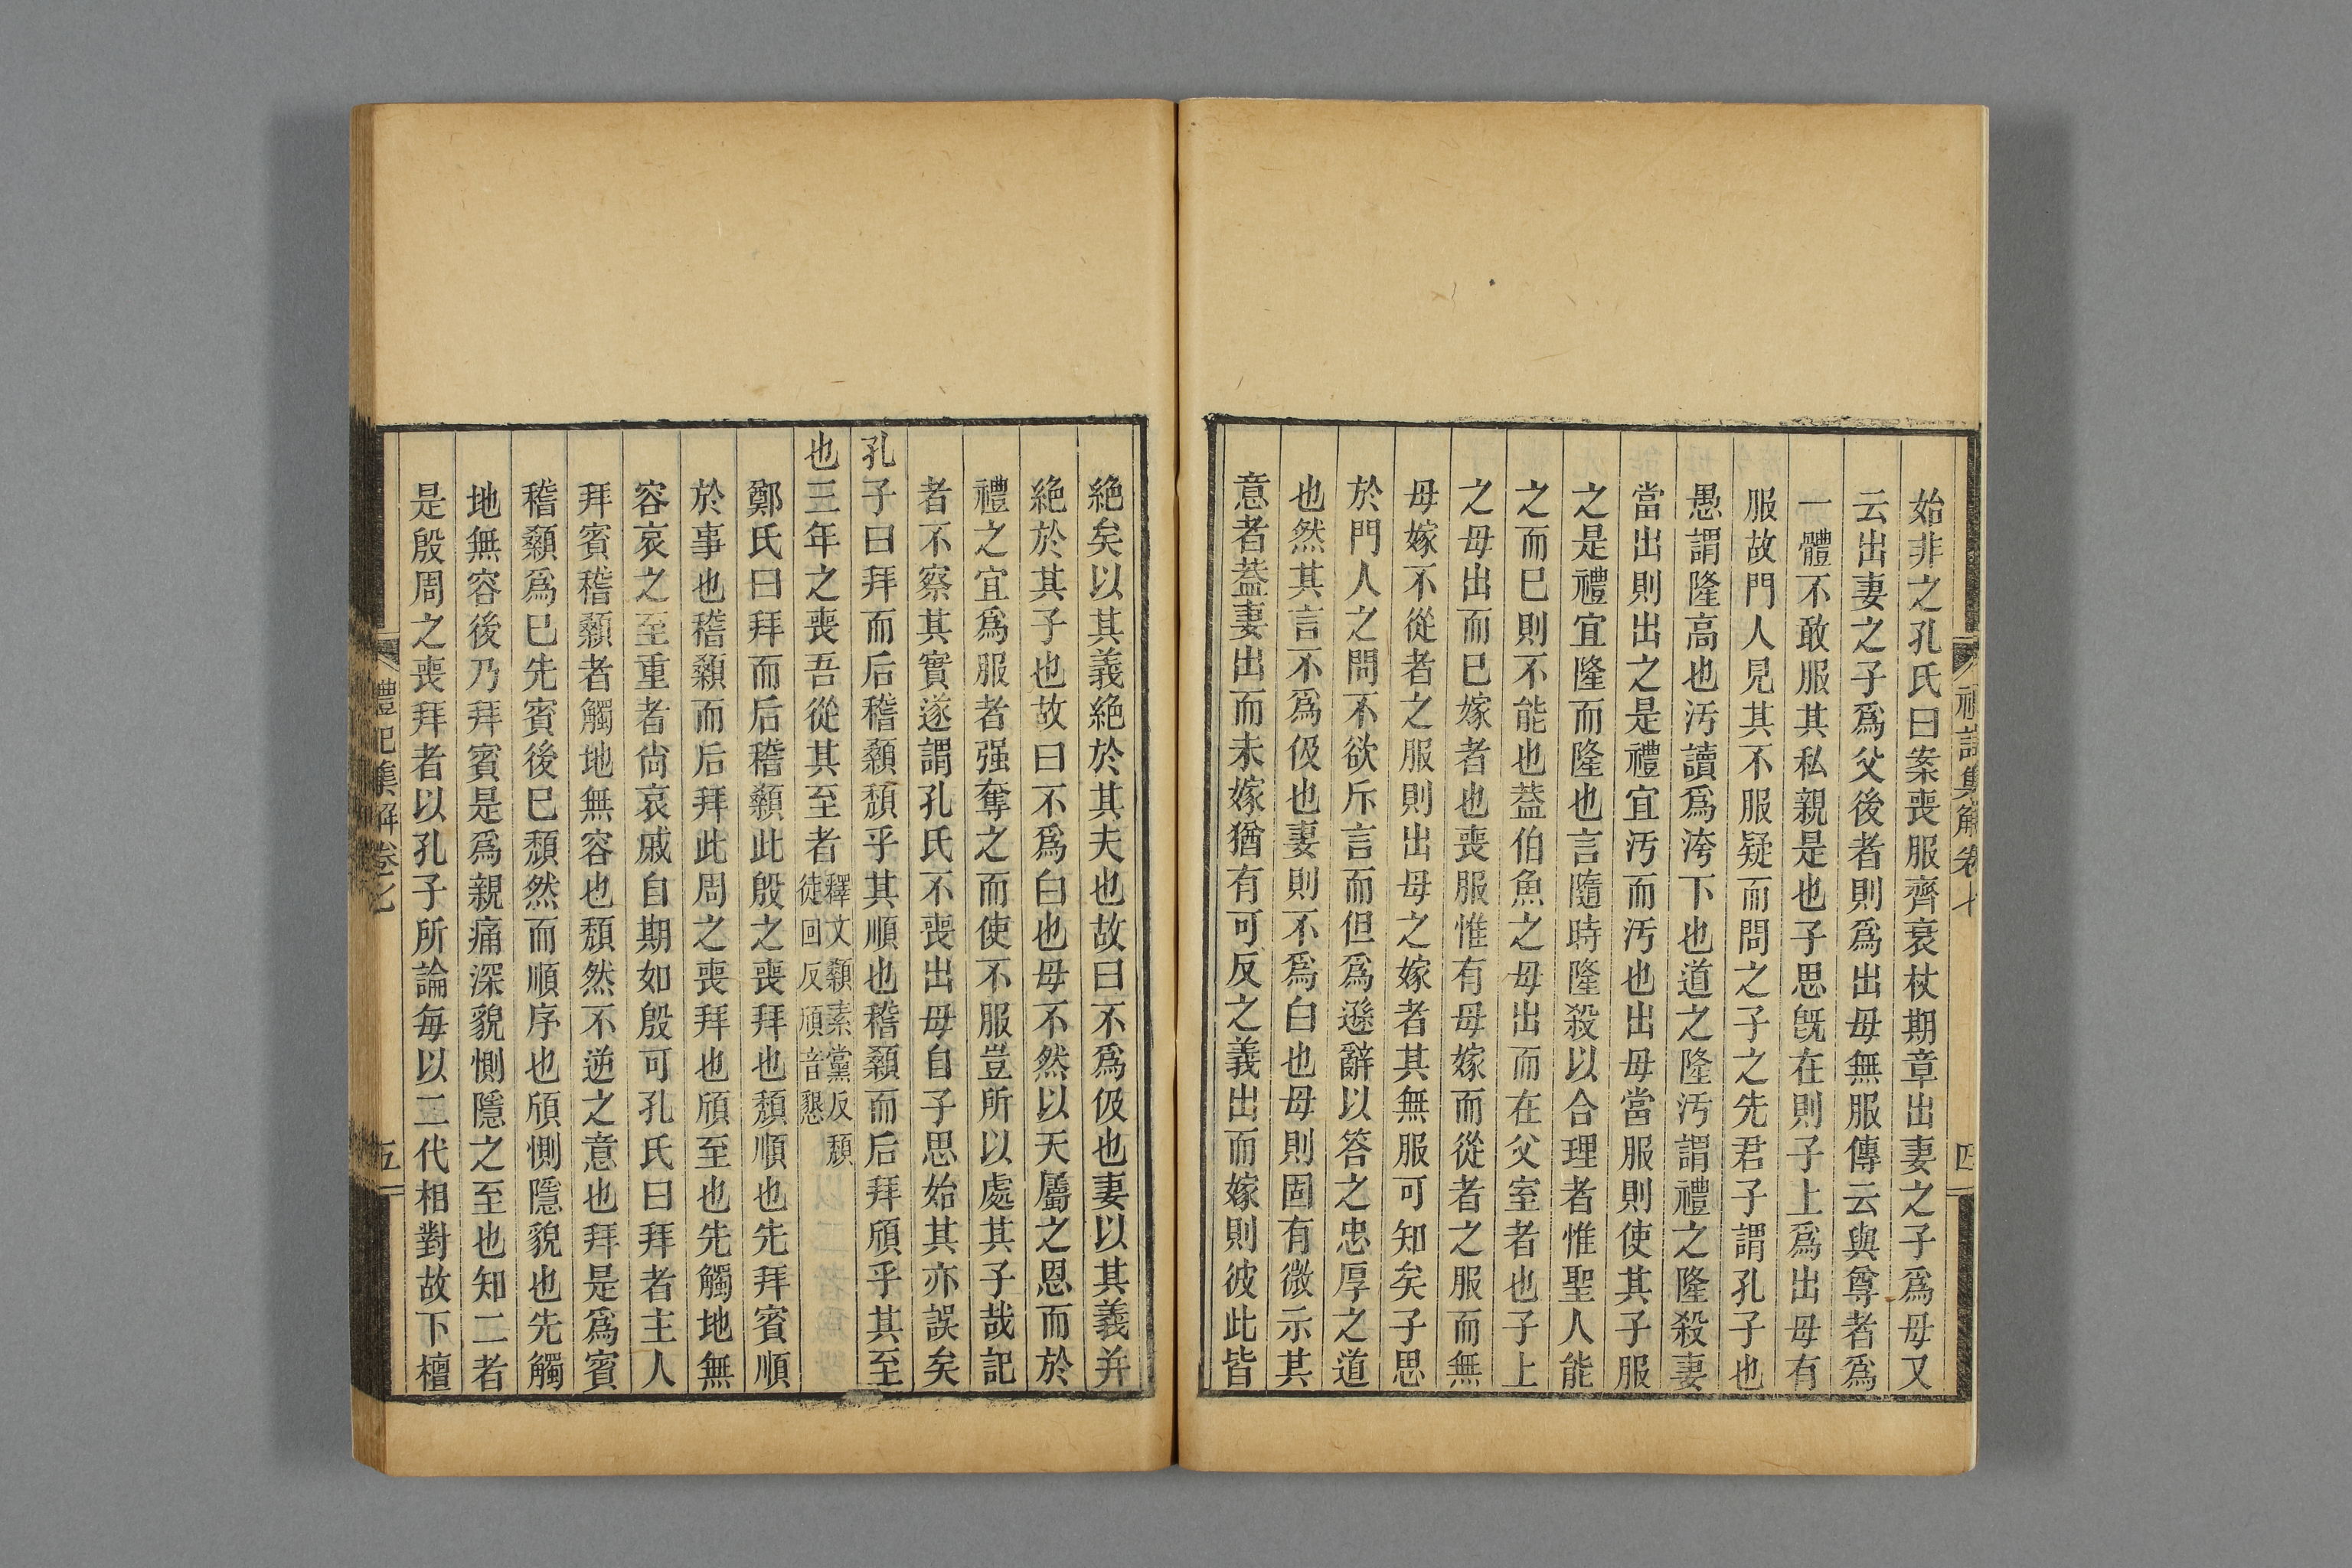 始非之孔氏曰案喪服齊衰杖期章出妻之子爲母又
云出妻之子爲父後者則爲出母無服傳云與尊者爲
一體不敢服其私親是也子思旣在則子上爲出母有
服故門人見其不服疑而問之子之先君子謂孔子也
愚謂隆高也汚讀爲洿下也道之隆汚謂禮之隆殺妻
當出則出之是禮宜汚而汚也出母當服則使其子服
之是禮宜隆而隆也言隨時隆殺以合理者惟聖人能
之而已則不能也葢伯魚之母出而在父室者也子上
之母出而已嫁者也喪服惟有母嫁而從者之服而無
母嫁不從者之服則出母之嫁者其無服可知矣子思
於門人之問不欲斥言而但爲遜辭以答之忠厚之道
也然其言不爲伋也妻則不爲白也母則固有微示其
意者葢妻出而未嫁猶有可反之義出而嫁則彼此皆
禮記集解卷七
四
絶矣以其義絶於其夫也故曰不爲伋也妻以其義并
絶於其子也故曰不爲白也母不然以天屬之恩而於
禮之宜爲服者强奪之而使不服豈所以處其子哉記
者不察其實遂謂孔氏不喪出母自子思始其亦誤矣
孔子曰拜而后稽顙頽乎其順也稽顙而后拜頎乎其至
也三年之喪吾從其至者釋文顙素黨反頽徒回反頎音懇
鄭氏曰拜而后稽顙此殷之喪拜也頽順也先拜賓順
於事也稽顙而后拜此周之喪拜也頎至也先觸地無
容哀之至重者尙哀戚自期如殷可孔氏曰拜者主人
拜賓稽顙者觸地無容也頽然不逆之意也拜是爲賓
稽顙爲已先賓後已頽然而順序也頎惻隱貌也先觸
地無容後乃拜賓是爲親痛深貌惻隱之至也知二者
是殷周之喪拜者以孔子所論每以二代相對故下檀
禮記集解卷七
五